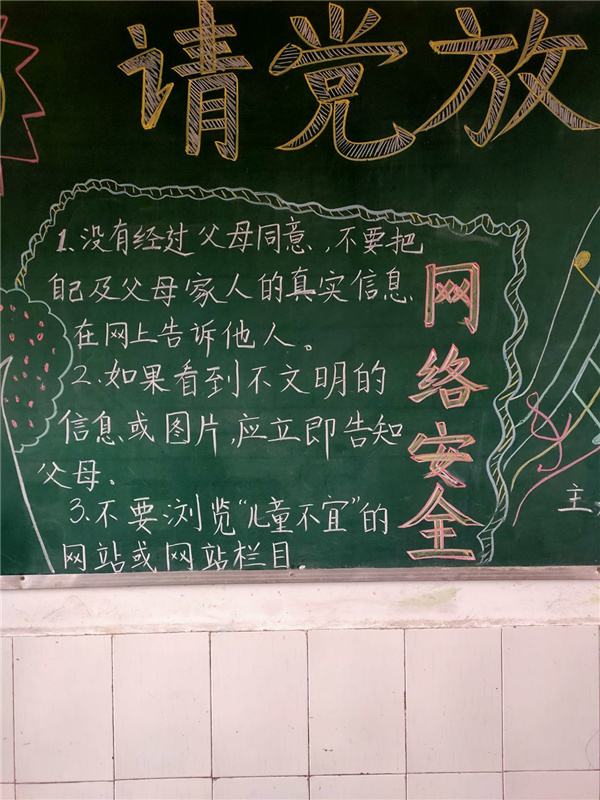 请党放
1.没有经过父母同意,不要把
自己及父母家人的真实信息
在网上告诉他人。
2.如果看到不文明的
信息或图片,应立即告知
父母。
3.不要浏览“儿童不宜”的
网站或网站栏目.
网络安全
主